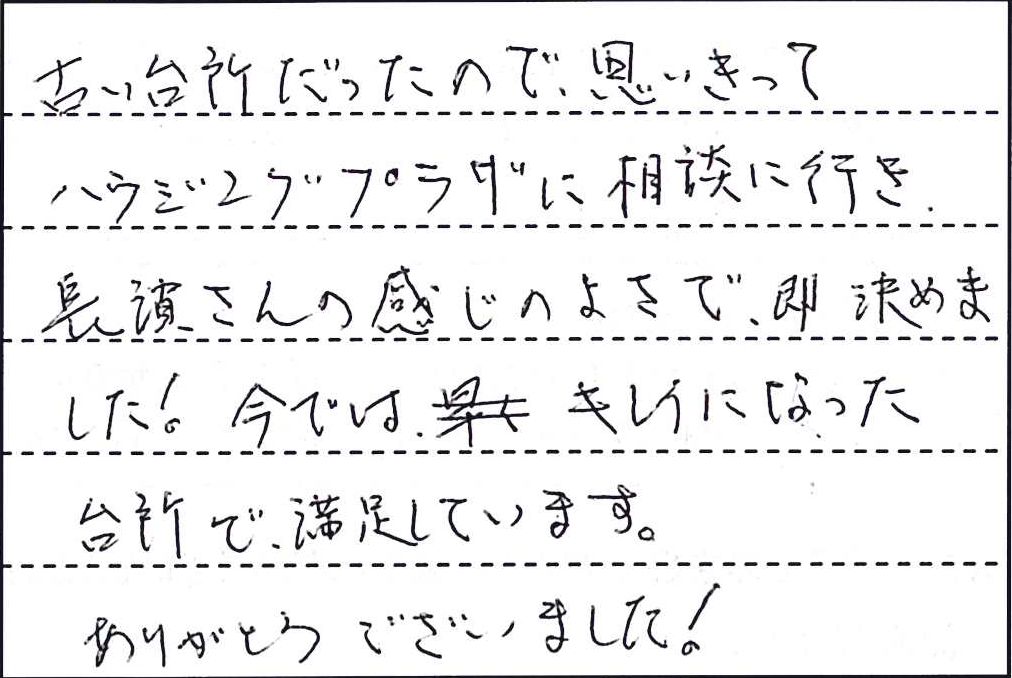 古い台所だったので、思いきって
ハウジングプラザに相談に行き、
長濵さんの感じのよさで、即決めま
した！今では、キレイになった
台所で、満足しています。
ありがとうございました！